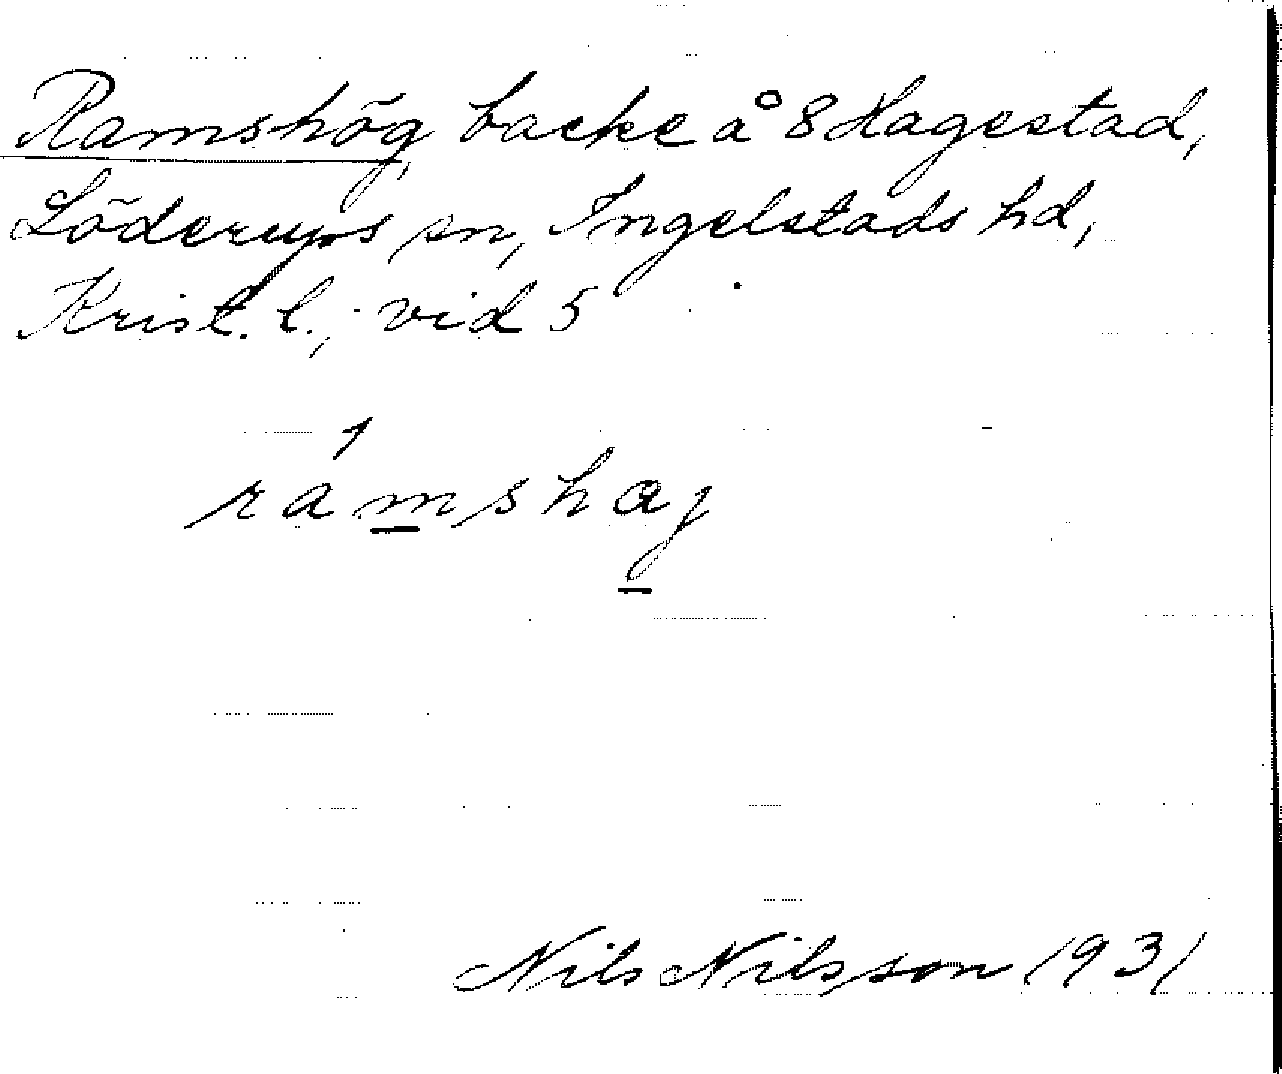 Ramshög, backe å 8 Hagestad,
Löderups sn, Ingelstads hd,
Krist. l.; vid 5
Nils Nilsson 1931